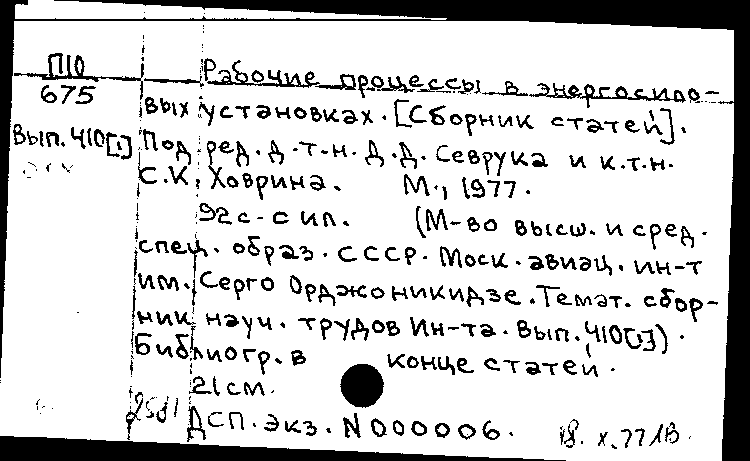 П10
675
Вып. 410[1]
Рабочие процессы в энергосило-
вых установках. [Сборник статей].
Под ред. д-т-н. Д.Д. Севрука и к.т.н.
С.К. Ховрина. М., 1977.
92 с. с ил. (М-во высш. и сред.
спец. образ. СССР. Моск. авиац. ин-т
им. Серго Орджоникидзе. Темат. сбор-
ник науч. трудов Ин-та. Вып. 410[1]).
Библиогр. в конце статей.
21 см.
ДСП. экз. N 000006.
2581
18. X. 77